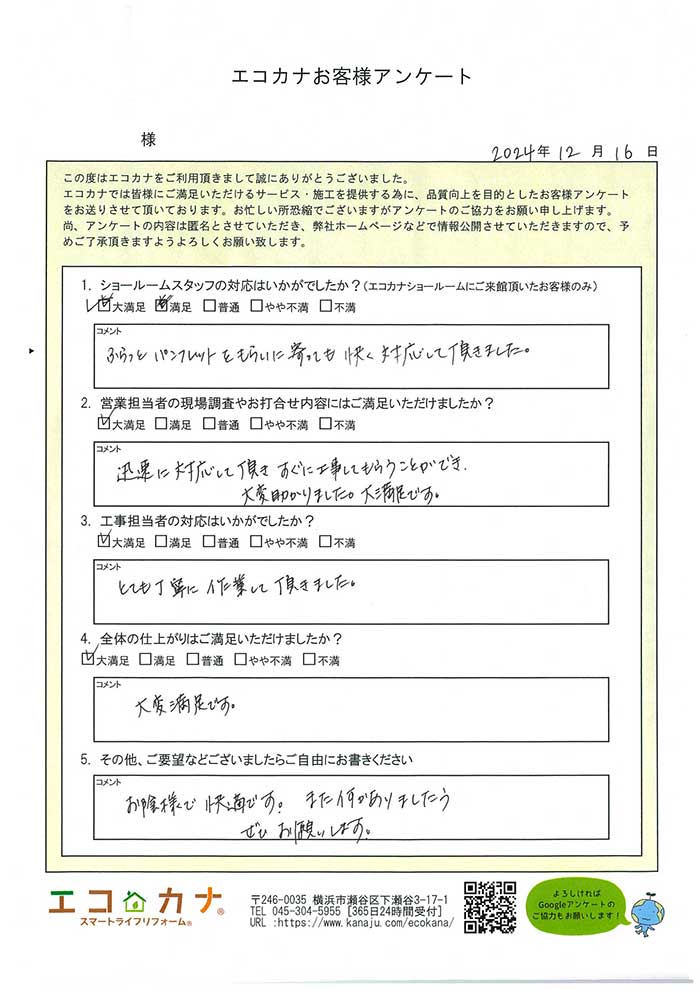 エコカナお客様アンケート
様
2024年 12 月 16 日
この度はエコカナをご利用頂きまして誠にありがとうございました。
エコカナでは皆様にご満足いただけるサービス・施工を提供する為に、品質向上を目的としたお客様アンケート
をお送りさせて頂いております。お忙しい所恐縮でございますがアンケートのご協力をお願い申し上げます。
尚、アンケートの内容は匿名とさせていただき、弊社ホームページなどで情報公開させていただきますので、予
めご了承頂きますようよろしくお願い致します。
1. ショールームスタッフの対応はいかがでしたか？(エコカナショールームにご来館頂いたお客様のみ)
☑大満足 □満足 □普通 □やや不満 □不満
コメント
ふらっと パンフレットをもらいに寄っても 快く対応して頂きました。
2. 営業担当者の現場調査やお打合せ内容にはご満足いただけましたか？
☑大満足 □満足 □普通 □やや不満 □不満
コメント
迅速に対応して頂き すぐに工事してもらうことができ、
大変助かりました。大満足です。
3. 工事担当者の対応はいかがでしたか？
☑大満足 □満足 □普通 □やや不満 □不満
コメント
とても丁寧に 作業して頂きました。
4. 全体の仕上がりはご満足いただけましたか？
☑大満足 □満足 □普通 □やや不満 □不満
コメント
大変満足です。
5. その他、ご要望などございましたらご自由にお書きください
コメント
お陰様で 快適です。 また何かありましたら
ぜひ お願いします。
エコカナ®
スマートライフリフォーム®
〒246-0035 横浜市瀬谷区下瀬谷3-17-1
TEL 045-304-5955 [365日24時間受付]
URL :https://www.kanaju.com/ecokana/
よろしければ
Googleアンケートの
ご協力もお願いします！